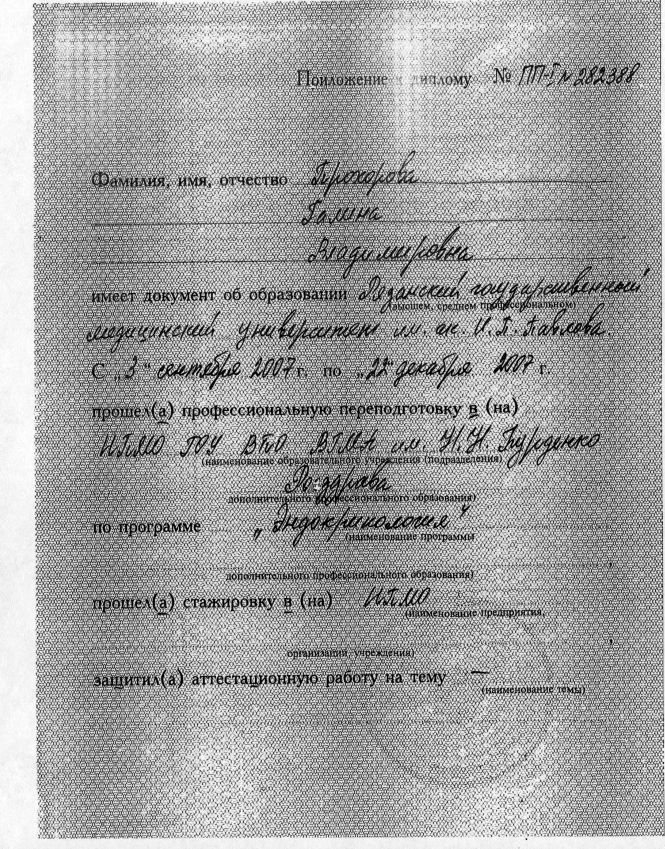 Приложение к диплому № ПП-I № 282388
Фамилия, имя, отчество Прохорова
Галина
Владимировна
имеет документ об образовании Рязанский государственный
(высшем, среднем профессиональном)
медицинский университет им. ак. И.П. Павлова.
С „3“ сентября 2007 г. по „22“ декабря 2007 г.
прошел(а) профессиональную переподготовку в (на)
ИПМО ГОУ ВПО ВГМА им. Н.Н. Бурденко
(наименование образовательного учреждения (подразделения)
Росздрава
дополнительного профессионального образования)
по программе „Эндокринология“
(наименование программы
дополнительного профессионального образования)
прошел(а) стажировку в (на) ИПМО
(наименование предприятия,
организации, учреждения)
защитил(а) аттестационную работу на тему —
(наименование темы)